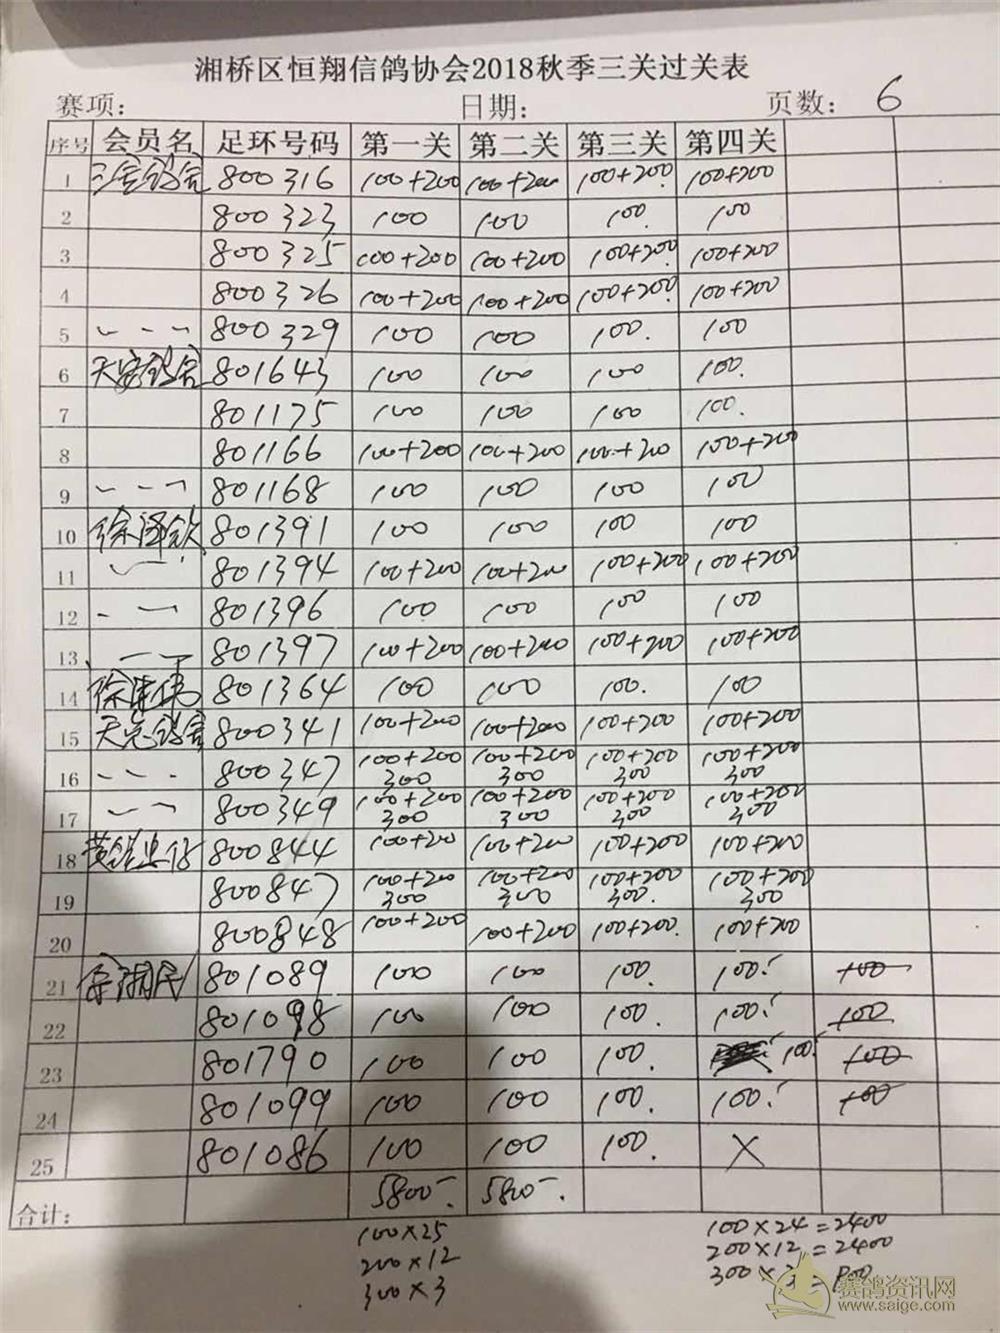 湘桥区恒翔信鸽协会2018秋季三关过关表
赛项: 日期: 页数: 6
序号 会员名 足环号码 第一关 第二关 第三关 第四关
1 800316 100+200 100+200 100+200. 100+200
2 800323 100 100 100. 100
3 800325 100+200 100+200 100+200 100+200
4 800326 100+200 100+200 100+200. 100+200
5 800329 100 100 100. 100
6 天安鸽舍 801643 100 100 100 100.
7 801175 100 100 100 100.
8 801166 100+200 100+200 100+200 100+200
9 801168 100 100 100 100
10 徐泽钦 801391 100 100 100 100
11 801394 100+200 100+200 100+200 100+200
12 801396 100 100 100 100
13 801397 100+200 100+200 100+200 100+200
14 801364 100 100 100. 100
15 800341 100+200 100+200 100+200 100+200
16 800347 100+200 300 100+200 300 100+200 300 100+200 300
17 800349 100+200 300 100+200 300 100+200 300 100+200 300
18 800844 100+200 100+200 100+200 100+200
19 800847 100+200 300 100+200 300 100+200 300. 100+200 300
20 800848 100+200 100+200 100+200. 100+200
21 801089 100 100 100. 100. 100
22 801098 100 100 100. 100. 100
23 801790 100 100 100. 100. 100
24 801099 100 100 100. 100. 100
25 801086 100 100 100. X
合计: 5800- 5800-.
100×25
200×12
300×3
100×24=2400
200×12=2400
300×3=900
赛鸽资讯网
www.saige.com